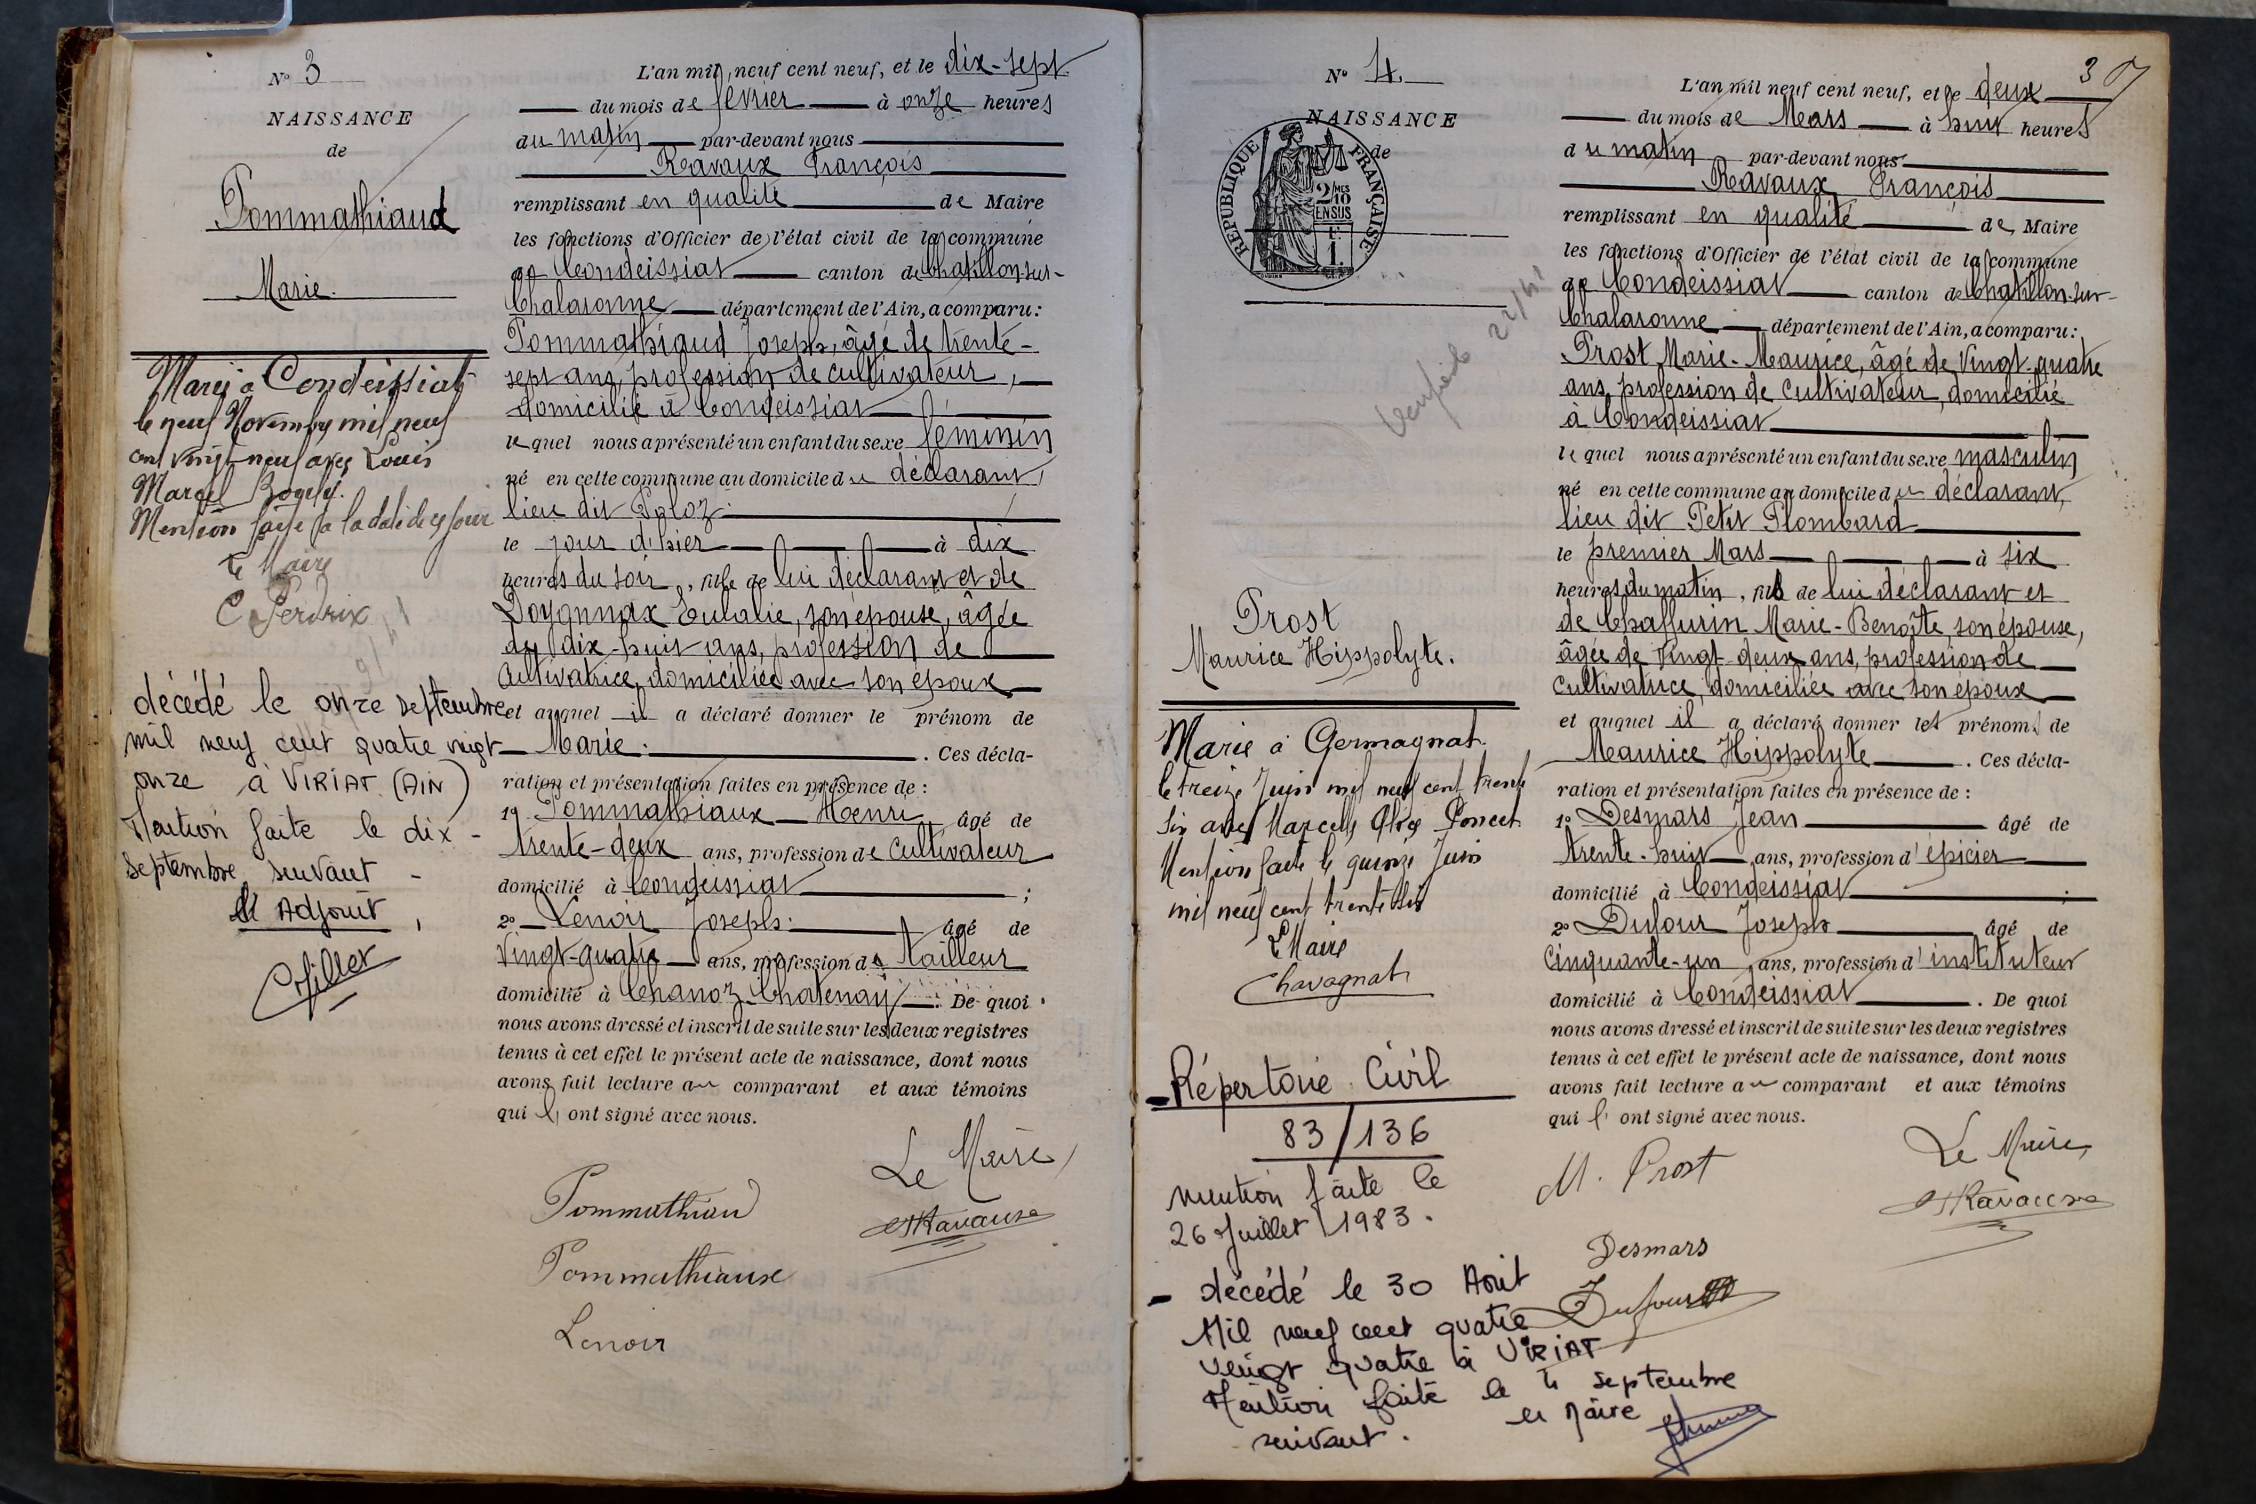 N° 3
NAISSANCE
de
Pommathiaud
Marie.
Marié à Condeissiat
le neuf Novembre mil neuf
cent vingt-neuf avec Louis
Marcel
Mention faite à la date de ce jour
Le Maire
C Perdrix
décédé le onze septembre
mil neuf cent quatre vingt
onze à VIRIAT (AIN)
Mention faite le dix-
septembre suivant -
L'Adjoint,
L'an mil neuf cent neuf, et le dix-sept
du mois de février à onze heures
du matin par-devant nous
Ravaux François
remplissant en qualité de Maire
les fonctions d'Officier de l'état civil de la commune
de Condeissiat canton de Chatillon-sur-
Chalaronne département de l'Ain, a comparu:
Pommathiaud Joseph, âgé de trente-
sept ans, profession de cultivateur,
domicilié à Condeissiat
lequel nous a présenté un enfant du sexe féminin
né en cette commune au domicile du déclarant,
lieu dit Paloz.
le jour d'hier à dix
heures du soir, fille de lui déclarant et de
Doyonnax Eulalie, son épouse, âgée
de dix-huit ans, profession de
cultivatrice, domiciliée avec son époux
et auquel il a déclaré donner le prénom de
Marie. Ces décla-
ration et présentation faites en présence de :
1° Pommathiaux Henri âgé de
trente-deux ans, profession de cultivateur
domicilié à Condeissiat ;
2° Lenoir Joseph. âgé de
vingt-quatre ans, profession de tailleur
domicilié à Chanoz-Chatenay. De quoi
nous avons dressé et inscrit de suite sur les deux registres
tenus à cet effet le présent acte de naissance, dont nous
avons fait lecture au comparant et aux témoins
qui l' ont signé avec nous.
Le Maire,
Pommathiau
Ravaux
Pommathiaux
Lenoir
3
N° 4
NAISSANCE
de
RÉPUBLIQUE FRANÇAISE
2/10MES
EN SUS
1.
Prost
Maurice Hippolyte.
Marié à Germagnat
le treize Juin mil neuf cent trente
six avec Marcelle Poncet
Mention faite le quinze Juin
mil neuf cent trente six
Le Maire
Chavagnat
Répertoire Civil
83/136
mention faite le
26 Juillet 1983.
- décédé le 30 Août
Mil neuf cent quatre
vingt quatre à VIRIAT
Mention faite le 4 septembre
suivant. le Maire
L'an mil neuf cent neuf, et le deux
du mois de Mars à huit heures
du matin par-devant nous
Ravaux François
remplissant en qualité de Maire
les fonctions d'Officier de l'état civil de la commune
de Condeissiat canton de Chatillon-sur-
Chalaronne département de l'Ain, a comparu:
Prost Marie-Maurice, âgé de vingt-quatre
ans, profession de cultivateur, domicilié
à Condeissiat
lequel nous a présenté un enfant du sexe masculin
né en cette commune au domicile du déclarant,
lieu dit Petit Plombard
le premier Mars à six
heures du matin, fils de lui déclarant et
de Chaffurin Marie-Benoîte, son épouse,
âgée de vingt-deux ans, profession de
cultivatrice, domiciliée avec son époux
et auquel il a déclaré donner les prénoms de
Maurice Hippolyte. Ces décla-
ration et présentation faites en présence de :
1° Desmars Jean âgé de
trente-huit ans, profession d'épicier
domicilié à Condeissiat ;
2° Dufour Joseph âgé de
cinquante-un ans, profession d'instituteur
domicilié à Condeissiat. De quoi
nous avons dressé et inscrit de suite sur les deux registres
tenus à cet effet le présent acte de naissance, dont nous
avons fait lecture au comparant et aux témoins
qui l' ont signé avec nous.
Le Maire,
M. Prost
Ravaux
Desmars
J Dufour